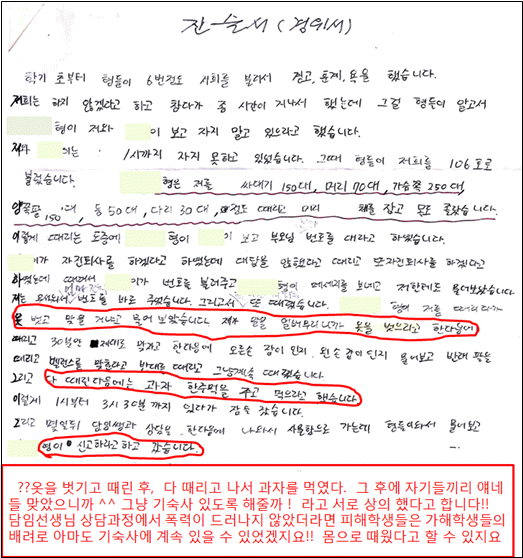 진술서 (경위서)
학기 초부터 형들이 6번정도 저희를 불러서 경고, 훈계, 욕을 했습니다.
저희는 하지 않겠다고 하고 참다가 좀 시간이 지나서 했는데 그걸 형들이 알고서
형이 저와 이 보고 자지 말고 있으라고 했습니다.
저와 는 1시까지 자지 못하고 있었습니다. 그때 형들이 저희를 106호로
불렀습니다. 형은 저를 싸대기 150대, 머리 70대, 가슴쪽 250대,
양쪽팔 150대, 등 50대, 다리 30대, 정도 때리고 머리 채를 잡고 목도 졸랐습니다.
이렇게 때리는 도중에 형이 이 보고 부모님 번호를 대라고 하였습니다.
이가 자진퇴사를 하겠다고 하였는데 대답을 안했다고 때리고 또 자진퇴사를 하겠다고
하였는데 때면서 이가 번호를 불러주고 형이 메세지를 보내고 저한테도 물어보았습니다.
저는 번호를 바로 주었습니다. 그리고서 또 때렸습니다. 형이 저를 때리다가
옷 벗고 맞을 거냐고 물어 보았습니다 옷을 벗으라고 한다음에
때리고 30분만 맞자고 한다음에 오른손 잡이인지, 왼손잡이인지 물어보고 반대 팔로
때리고 밸런스를 맞춘다고 반대로 때리고 그냥계속 때렸습니다.
그리고 다 때린다음에는 과자 한주먹을 주고 먹으라고 했습니다
이렇게 1시부터 3시 30분 까지 있다가 잠을 잤습니다.
그리고 몇일뒤 담임쌤과 상담을 한다음에 나와서 사물함으로 가는데 형들이와서 물어보고
형이 신고하라고하고 갔습니다.
??옷을 벗기고 때린 후, 다 때리고 나서 과자를 먹였다. 그 후에 자기들끼리 얘네
들 맞았으니까 ^^ 그냥 기숙사 있도록 해줄까 ! 라고 서로 상의 했다고 합니다!!
담임선생님 상담과정에서 폭력이 드러나지 않았더라면 피해학생들은 가해학생들의
배려로 아마도 기숙사에 계속 있을 수 있었겠지요!! 몸으로 때웠다고 할 수 있지요